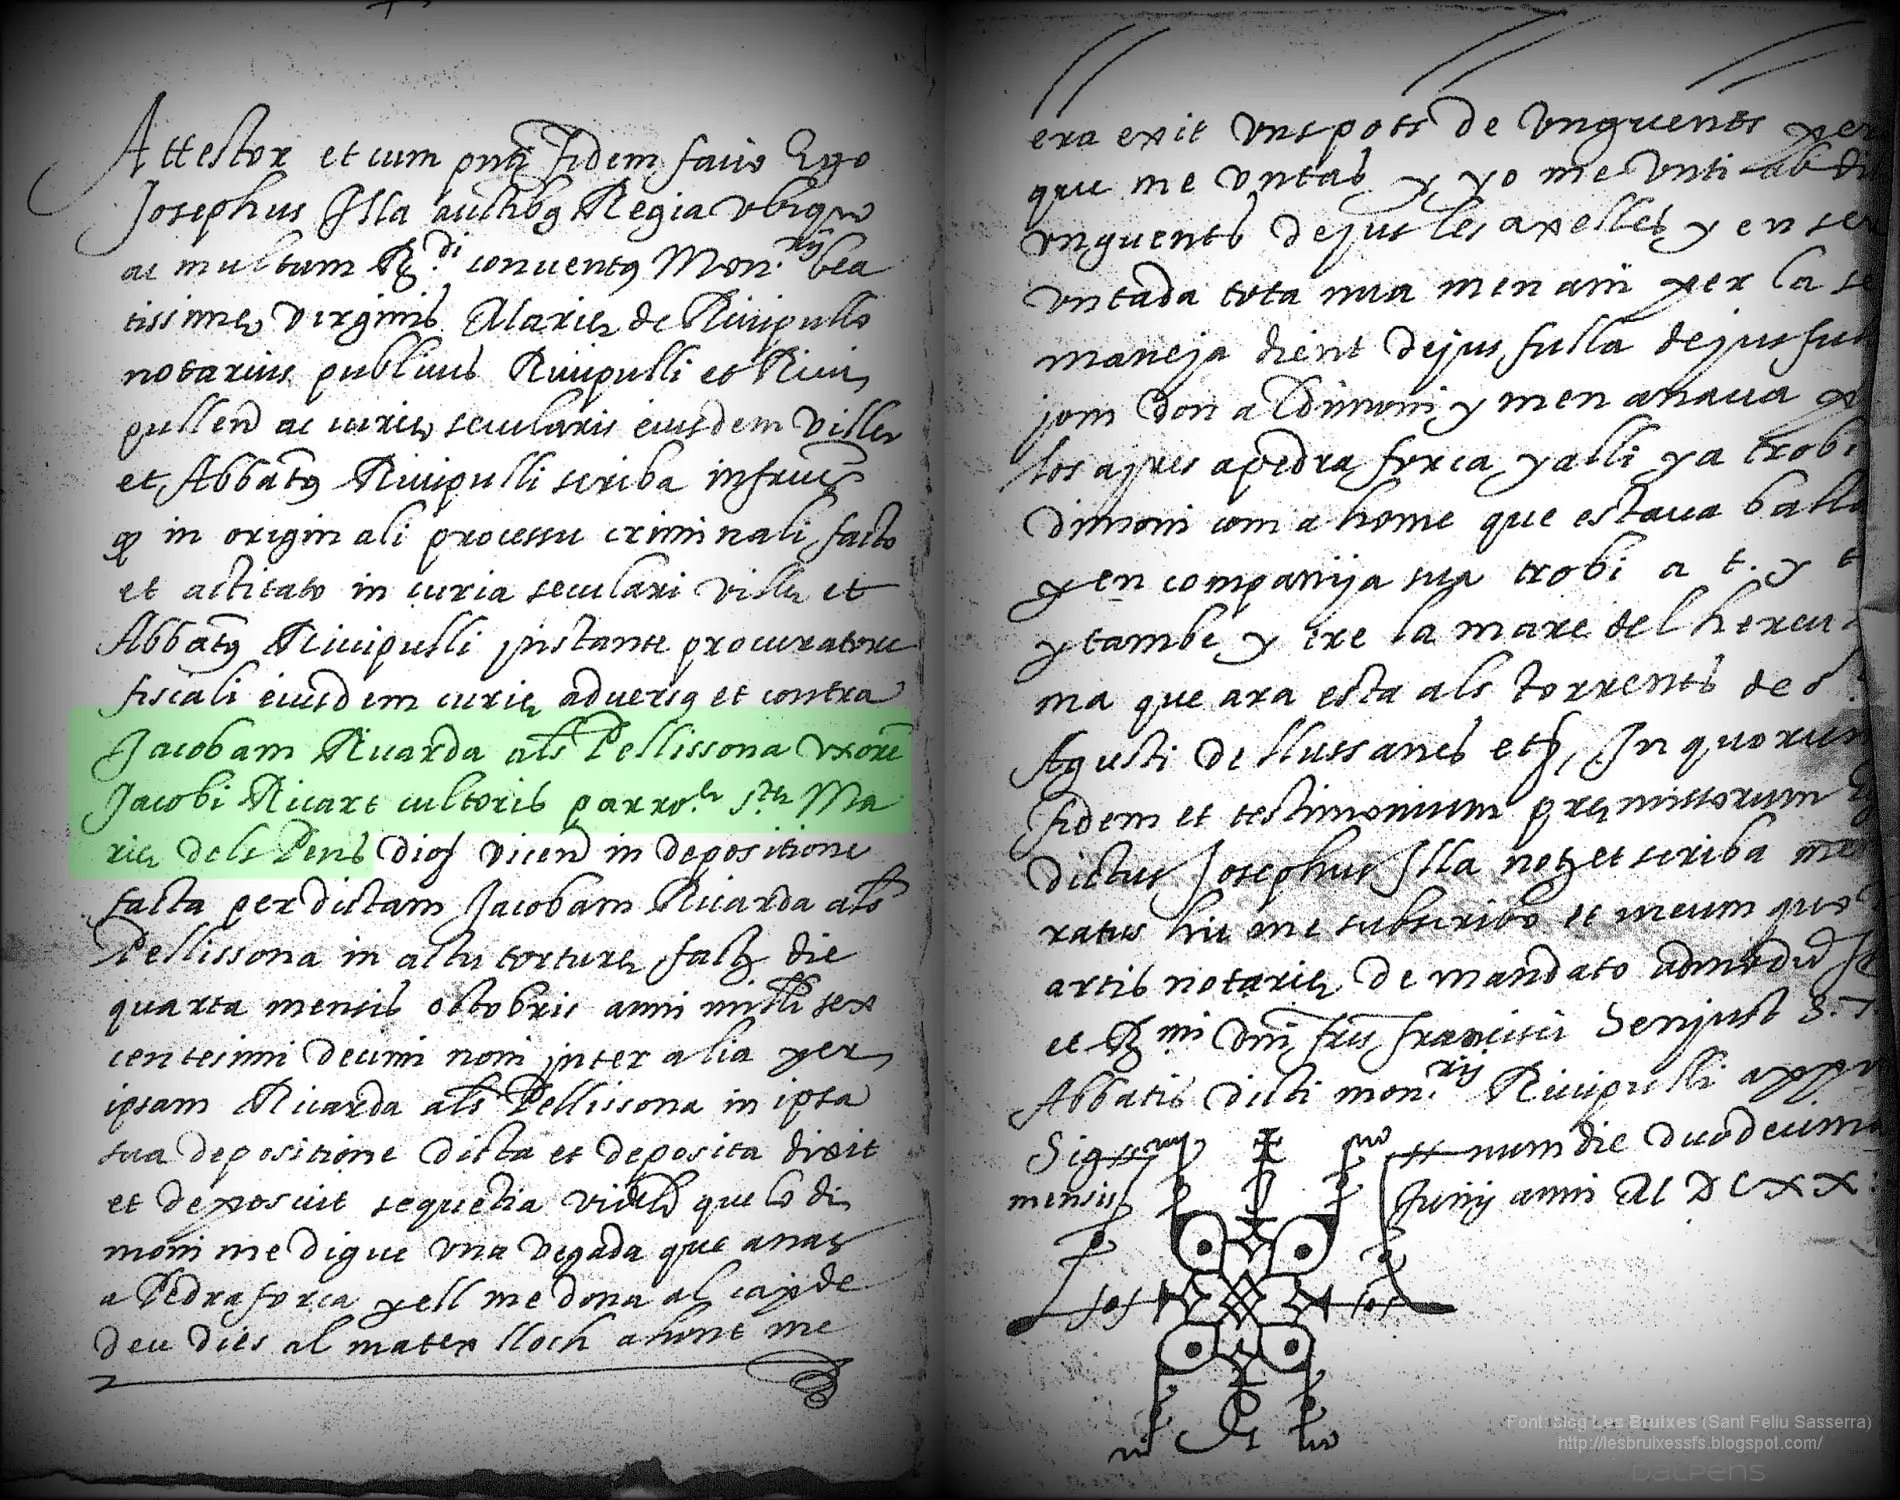 Attestor et cum pnti fidem facio Ego
Josephus Illa auctibq Regia vbiqz
ac multum R.di conuentq Mon.rij bea
tissime virginis Marie de Riuipullo
notarius publicus Riuipulli et Riui
pullen ac curie secularis eiusdem ville
et Abbatq Riuipulli scriba infrus
qo in originali processu criminali facto
et actitato in curia seculari ville et
Abbatq Riuipulli jnstante procuratore
fiscali eiusdem curie aduersq et contra
Jacobam Ricarda als Pellissona vxore
Jacobi Ricart cultoris parro.le S.te Ma
rie dels Pens dios vicen in depositione
facta per dictam Jacobam Ricarda als
Pellissona in actu torture die
quarta mensis octobris anni milli sex
centesimi decimi noni jnter alia per
ipsam Ricarda als Pellissona in ipsa
sua depositione dicta et deposita dixit
et deposuit sequetia que lo di
moni me digue vna vegada que anas
a Pedraforca y ell me dona al cap de
deu dies al matex lloch ahont me
era exit vns pots de vnguents per
que me vntas y yo me vnti ab
vnguents dejus les axelles y en ser
vntada tota nua men ani per la
maneja dient dejus fulla dejus
jom don al dimoni y men anaua
los ayres a pedra forca y alli ya trobi
dimoni com a home que estaua
y en companyia sua trobi a t. y
y tambe y ere la mare del hereu
ma que ara esta als torrents de
Agusti de llussanes etc, In quorum
fidem et testimonium premissorum
dictus Josephus Illa not et scriba
ratus hic me subscribo et meum
artis notarie de mandato
et R.mi Dni fris francisci Senjust
Abbatis dicti mon.rij Riuipulli
Sig num die duodecima
mensis Junij anni M D C X X
Font: blog Les Bruixes (Sant Feliu Sasserra)
http://lesbruixessfs.blogspot.com/